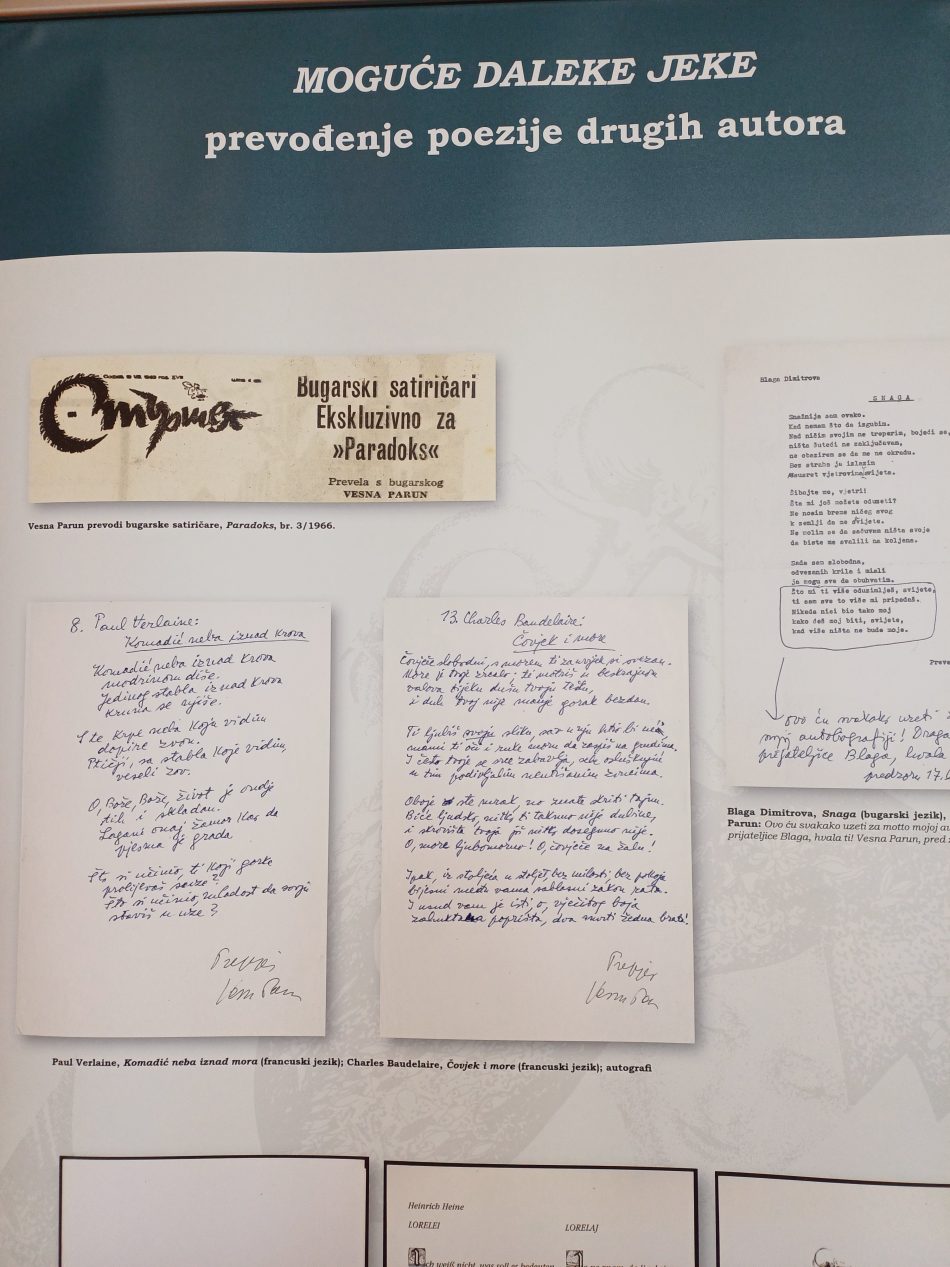 MOGUĆE DALEKE JEKE
prevođenje poezije drugih autora
Bugarski satiričari
Ekskluzivno za
»Paradoks«
Prevela s bugarskog
VESNA PARUN
Vesna Parun prevodi bugarske satiričare, Paradoks, br. 3/1966.
8. Paul Verlaine:
Komadić neba iznad krova
Komadić neba iznad krova
modrinom diše.
Jedinog stabla iznad krova
kruna se njiše.
S te krpe neba koju vidim
dopire zvon.
Ptičji, sa stabla koje vidim,
veseli zov.
O, Bože, Bože, život je ondje
tih i skladan.
Lagani onaj žamor kao da
pjesma je grada.
Što si učinio, ti koji gorke
prolijevaš suze?
Što si učinio, mladost da svoju
staviš u uze?
Prepjev
Vesna Parun
13. Charles Baudelaire:
Čovjek i more
Čovječe slobodni, s morem ti zauvijek si svezan.
More je tvoje zrcalo: ti motriš u beskrajnom
valova bijeku dušu tvoju
i duh tvoj nije manje gorak bezdan.
Ti ljubiš svoju sliku,
mami ti oči i ruke moru da zaviš na grudima.
I često tvoje se srce zabavlja, sem osluškujuć
u tim podivljalim neutišanim zvucima.
Oboje ste mrak, no znate skriti tajnu.
Biće ljudsko, nitko ti taknuo nije dubine,
i skrovišta tvoja još nitko dosegnuo nije.
O, more ljubomorno! O, čovječe na žalu!
Ipak, iz stoljeća u stoljeće bez milosti, bez pokoja
bijesni među vama sablasni zakon rata.
I usud vam je isti, o, vječitog boja
poprišta, dva smrti žedna brata!
Prepjev
Vesna Parun
Paul Verlaine, Komadić neba iznad mora (francuski jezik); Charles Baudelaire, Čovjek i more (francuski jezik); autografi
Blaga Dimitrova
SNAGA
Snažnija sam ovako.
Kad nemam što da izgubim.
Nad ničim svojim ne treperim, bojeći se,
ništa šutedi ne zaključavam,
ne obazirem se da me ne okradu.
Bez straha ja izlazim
vjetrovima svijeta.
Šibajte me, vjetri!
Šta mi još možete oduzeti?
Ne nosim breme ničeg svog
k zemlji da me svijete.
Ne molim se da sačuvam ništa svoje
da biste me svalili na koljena.
Sada sam slobodna,
odvezanih krila i misli
ja mogu sve da obuhvatim.
Što mi ti više oduzimlješ, svijete,
ti sam sve to više mi pripadaš.
Nikada nisi bio tako moj
kako ćeš moj biti, svijete,
kad više ništa ne bude moje.
Preve
ovo ću svakako uzeti
mojoj autobiografiji! Draga
prijateljice Blaga, hvala
predzom 17.
Blaga Dimitrova, Snaga (bugarski jezik),
Parun: Ovo ću svakako uzeti za motto mojoj au
prijateljice Blaga, hvala ti! Vesna Parun, pred z
Heinrich Heine
LORELEI
LORELAJ
Ich weiß nicht, was soll es bedeuten